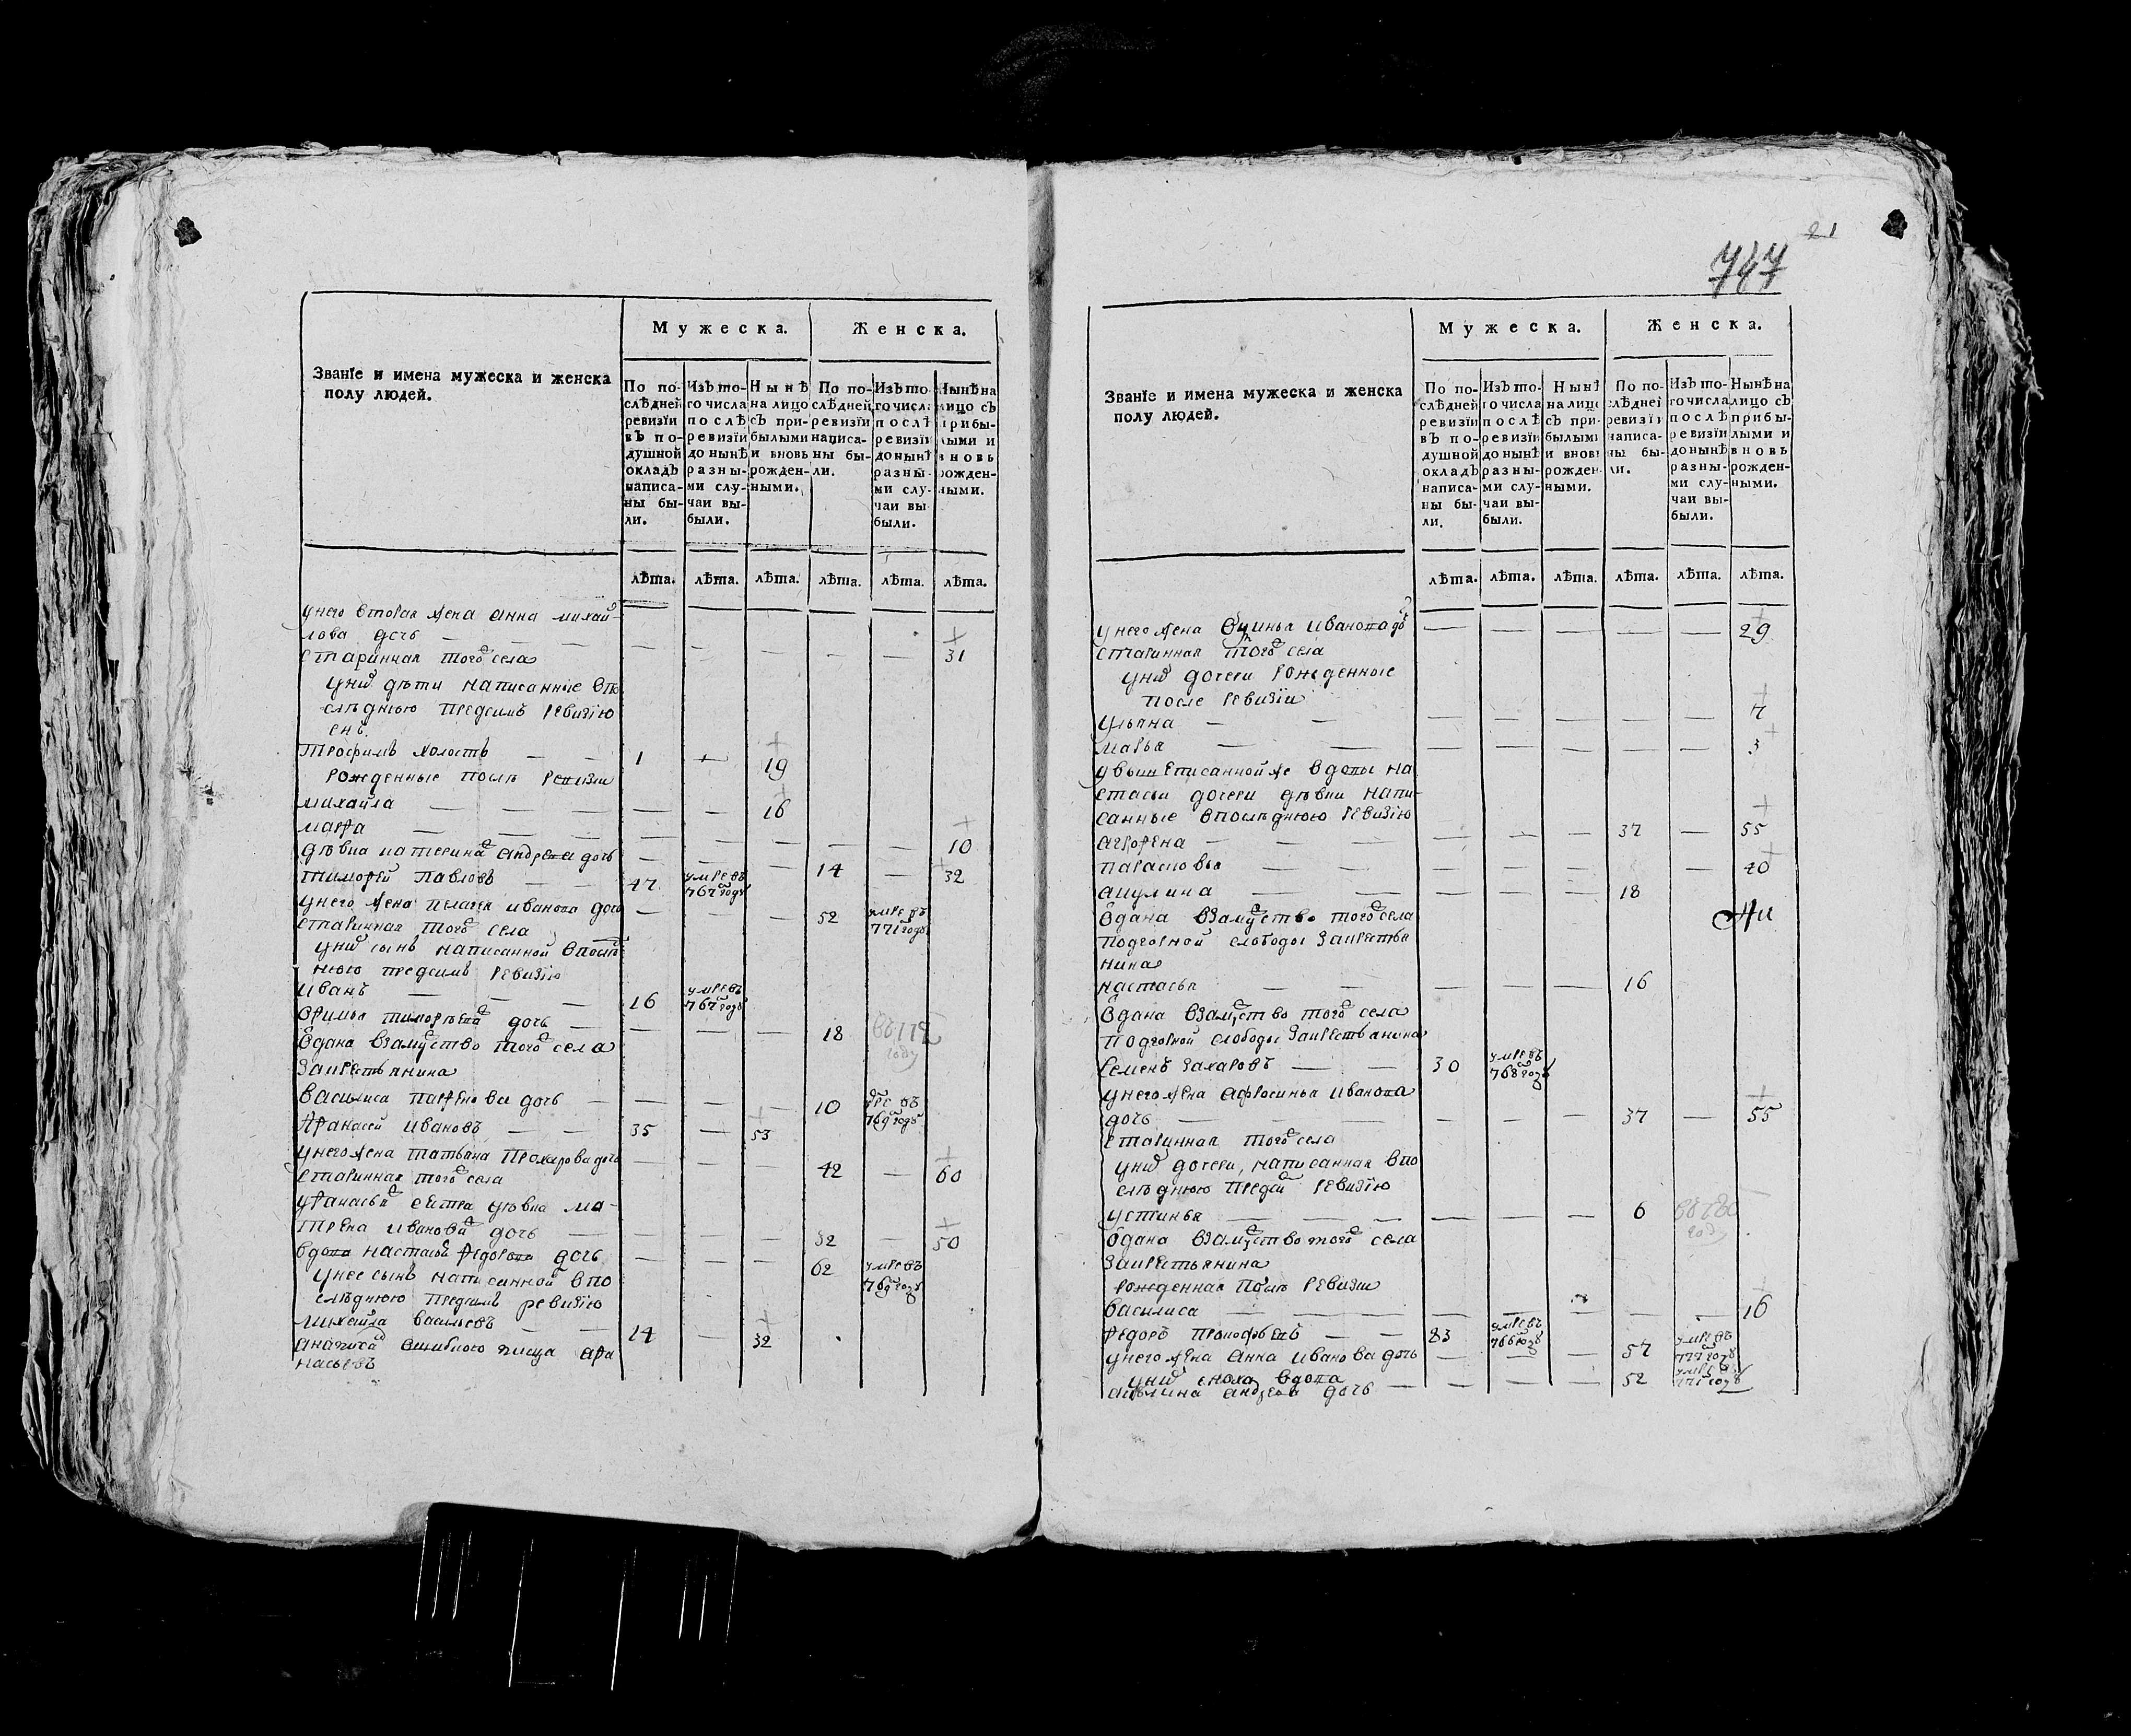 Мужеска. Женска.
Званїе и имена мужеска и женска
полу людей.
По по-
слѣдней
ревизїи
въ по-
душной
окладъ
написа-
ны бы-
ли.
Изъ то-
го числа
послѣ
ревизїи
до нынѣ
разны-
ми слу-
чаи вы-
были.
Нынѣ
на лицо
съ при-
былыми
и вновь
рожден-
ными.
По по-
слѣдней
ревизїи
написа-
ны бы-
ли.
Изъ то
го числа
послѣ
ревизїи
до нынѣ
разны-
ми слу-
чаи вы-
были.
Нынѣ на
лицо съ
прибы-
лыми и
вновь
рожден-
ными.
лѣта. лѣта. лѣта. лѣта. лѣта. лѣта.
унего вторая жена анна михай
лова дочь — 31
старинная того села
униⷯ дѣти написанные впо
слѣднюю предсимъ ревизїю
сⷩ҇ъ.
трофимъ холостъ 1 — 19
рожденные послѣ ревизии
михайла — 16
марфа — 10
дѣвка катерина андреева дочь 14 — 32
тимофей павловъ 47 умре въ 767 году
унего жена пелагея иванова дочь 52 умре въ 771 году
старинная того села
униⷯ сынъ написанной впослѣд
нюю предсимъ ревизїю
иванъ — 16 умре въ 767 году
тимофѣева дочь — 18
вдана взамужство того села
закрестьянина
василиса парфенова дочь — 10 умре въ 769 году
афанасей ивановъ — 35 — 53
унего жена татьяна прохорова дочь 42 — 60
старинная того села
уфанасья сестра дѣвка ма-
трена иванова дочь — 32 — 50
вдова настасья федорова дочь 62 умре въ 769 году
унее сынъ написанной впо
слѣднюю предсимъ ревизїю
михайла васильевъ 14 — 32
анаписан ошибкою писца афа
насьевъ
21
747
Мужеска. Женска.
Званїе и имена мужеска и женска
полу людей.
По по-
слѣдней
ревизїи
въ по-
душной
окладъ
написа-
ны бы-
ли.
Изъ то-
го числа
послѣ
ревизїи
до нынѣ
разны-
ми слу-
чаи вы-
были.
Нынѣ
на лицо
съ при-
былыми
и вновь
рожден-
ными.
По по-
слѣдней
ревизїи
написа-
ны бы-
ли.
Изъ то-
го числа
послѣ
ревизїи
до нынѣ
разны-
ми слу-
чаи вы-
были.
Нынѣ на
лицо съ
прибы-
лыми и
вновь
рожден-
ными.
лѣта. лѣта. лѣта. лѣта. лѣта. лѣта.
унего жена иванова дочь 29
старинная того села
униⷯ дочери рожденные
после ревизїи
ульяна —
марья — 3
увышеписаннойже вдовы на
стасьи дочери дѣвки напи-
санные впослѣднюю ревизїю
агрофена — 37 — 55
парасковья — 40
акулина — 18
вдана взамужство того села
подгорной слободы закрестья
нина
настасья — 16
вдана взамужство того села
подгорной слободы закрестьянина
семенъ захаровъ — 30 умре въ 768 году
унего жена афросинья иванова
дочь — 37 — 55
старинная того села
униⷯ дочери, написанная впо
слѣднюю предсим ревизїю
устинья — 6
вдана взамужство того села
закрестьянина
рожденная послѣ ревизии
василиса — 16
федоръ прокофьевъ — 83 умре въ 766 году
унего жена анна иванова дочь 57 умре въ 777 году
униⷯ сноха вдова
акулина андреева дочь — 52 умре въ 771 году